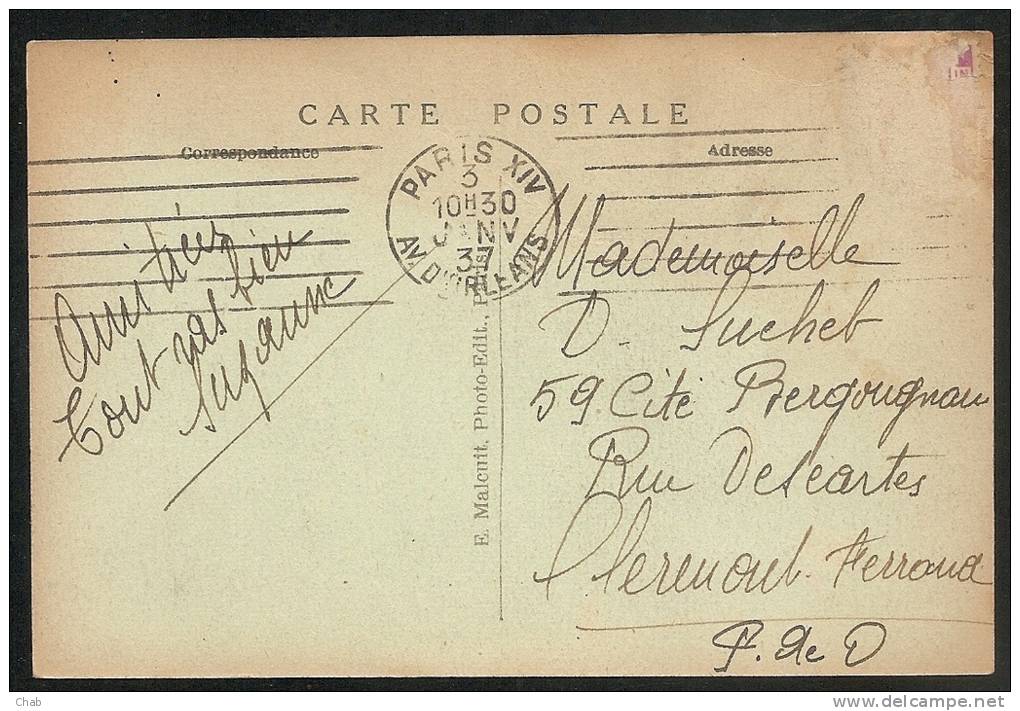 CARTE POSTALE
Correspondance
Adresse
PARIS XIV
3
10H30
JANV
37
AV. D'ORLEANS
Amitiés
Tout vas bien
Suzanne
E. Malcuit, Photo-Edit., Paris
Mademoiselle
D. Suchet
59 Cité Bergougnan
Rue Descartes
Clermont-Ferrand
P. de D
Chab
www.delcampe.net